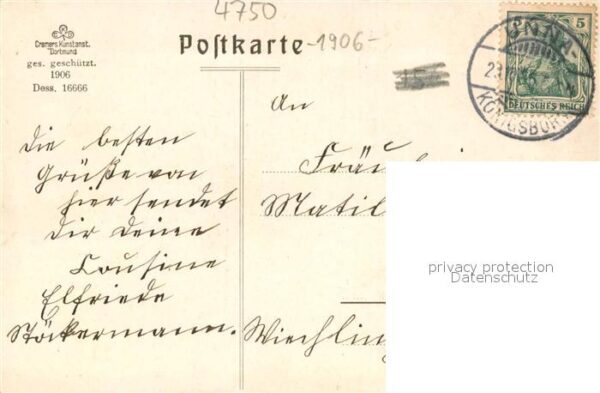 4750
Cramers Kunstanst.
Dortmund
ges. geschützt.
1906
Dess. 16666
Postkarte
-1906-
15
5
UNNA
KÖNIGSBORN
DEUTSCHES REICH
An
Fräu
Matil
Wiechling
Die besten
Grüße von
hier sendet
dir deine
Cousine
Elfriede
Stöckermann.
privacy protection
Datenschutz